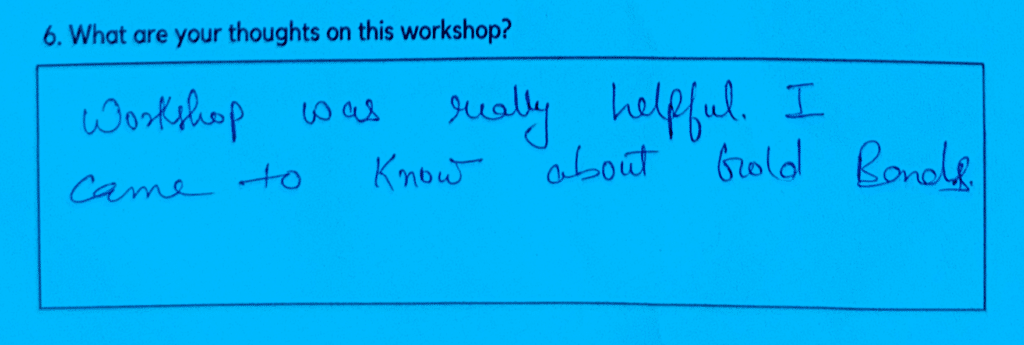 6. What are your thoughts on this workshop?
Workshop was really helpful. I
came to know about Gold Bonds.